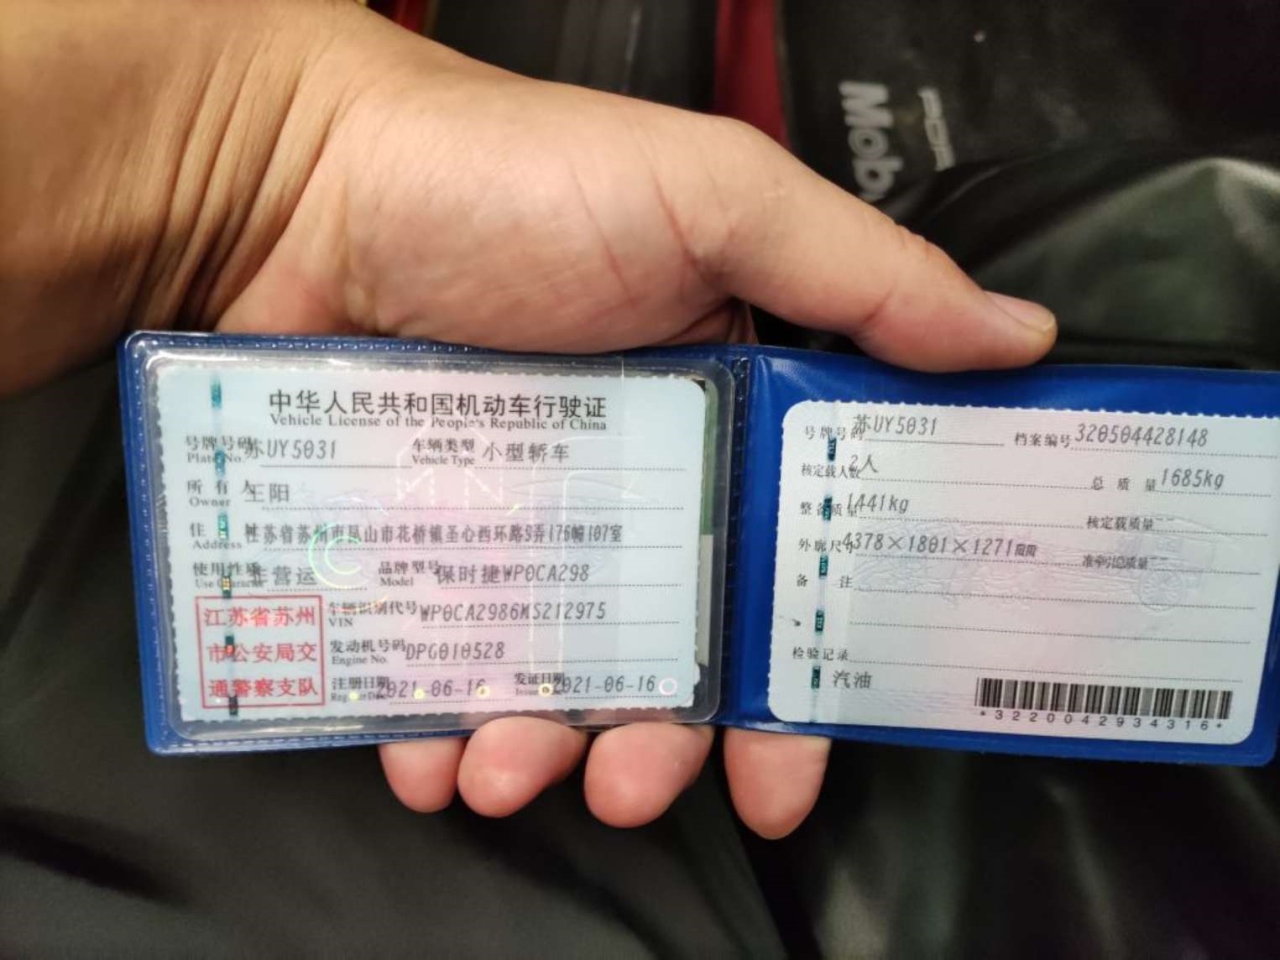 中华人民共和国机动车行驶证
Vehicle License of the People's Republic of China
号牌号码 苏UY5031 车辆类型 小型轿车
Plate No. Vehicle Type
所有人 王阳
Owner
住址 江苏省苏州市昆山市花桥镇圣心西环路9弄176幢107室
Address
使用性质 非营运 品牌型号 保时捷WP0CA298
Use Character Model
江苏省苏州
市公安局交
通警察支队
车辆识别代号 WP0CA2986MS212975
VIN
发动机号码 DPG010528
Engine No.
注册日期 2021-06-16 发证日期 2021-06-16
号牌号码 苏UY5031 档案编号 320504428148
核定载人数 2人 总质量 1685kg
整备质量 1441kg 核定载质量 --
外廓尺寸 4378×1801×1271mm 准牵引总质量 --
备注
检验记录
汽油
*3220042934316*
Mob